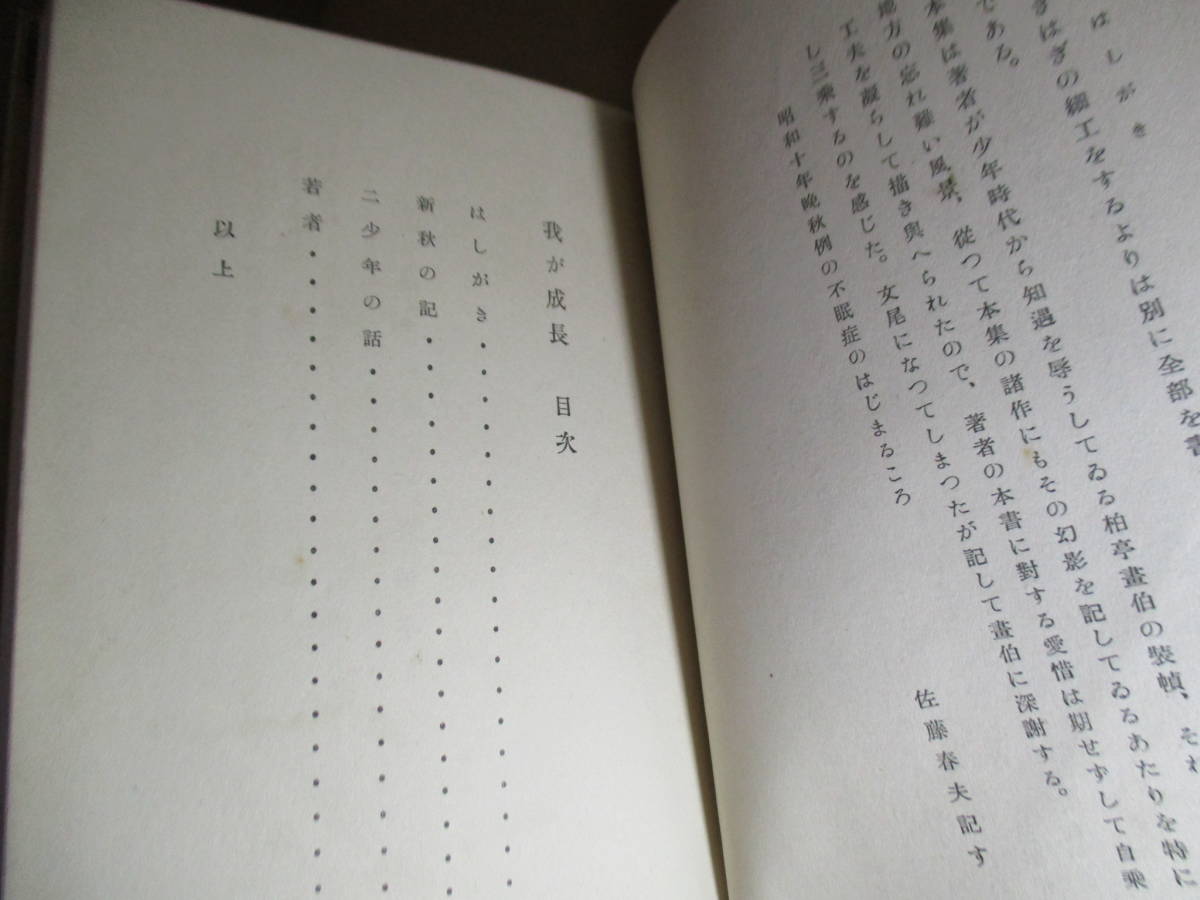 はしがき
きはぎの細工をするよりは別に全部を書
である。
本集は著者が少年時代から知遇を辱うしてゐる柏亭畫伯の裝幀、それ
地方の忘れ難い風景、從つて本集の諸作にもその幻影を記してゐるあたりを特に
工夫を凝らして描き與へられたので、著者の本書に對する愛惜は期せずして自乘
し三乘するのを感じた。女尾になつてしまつたが記して畫伯に深謝する。
昭和十年晩秋例の不眠症のはじまるころ
佐藤春夫記す
我が成長 目次
はしがき・・・・・・・・・・・・・・・・・
新秋の記・・・・・・・・・・・・・・・・・
二少年の話・・・・・・・・・・・・・・・・
若者・・・・・・・・・・・・・・・・・・・
以上